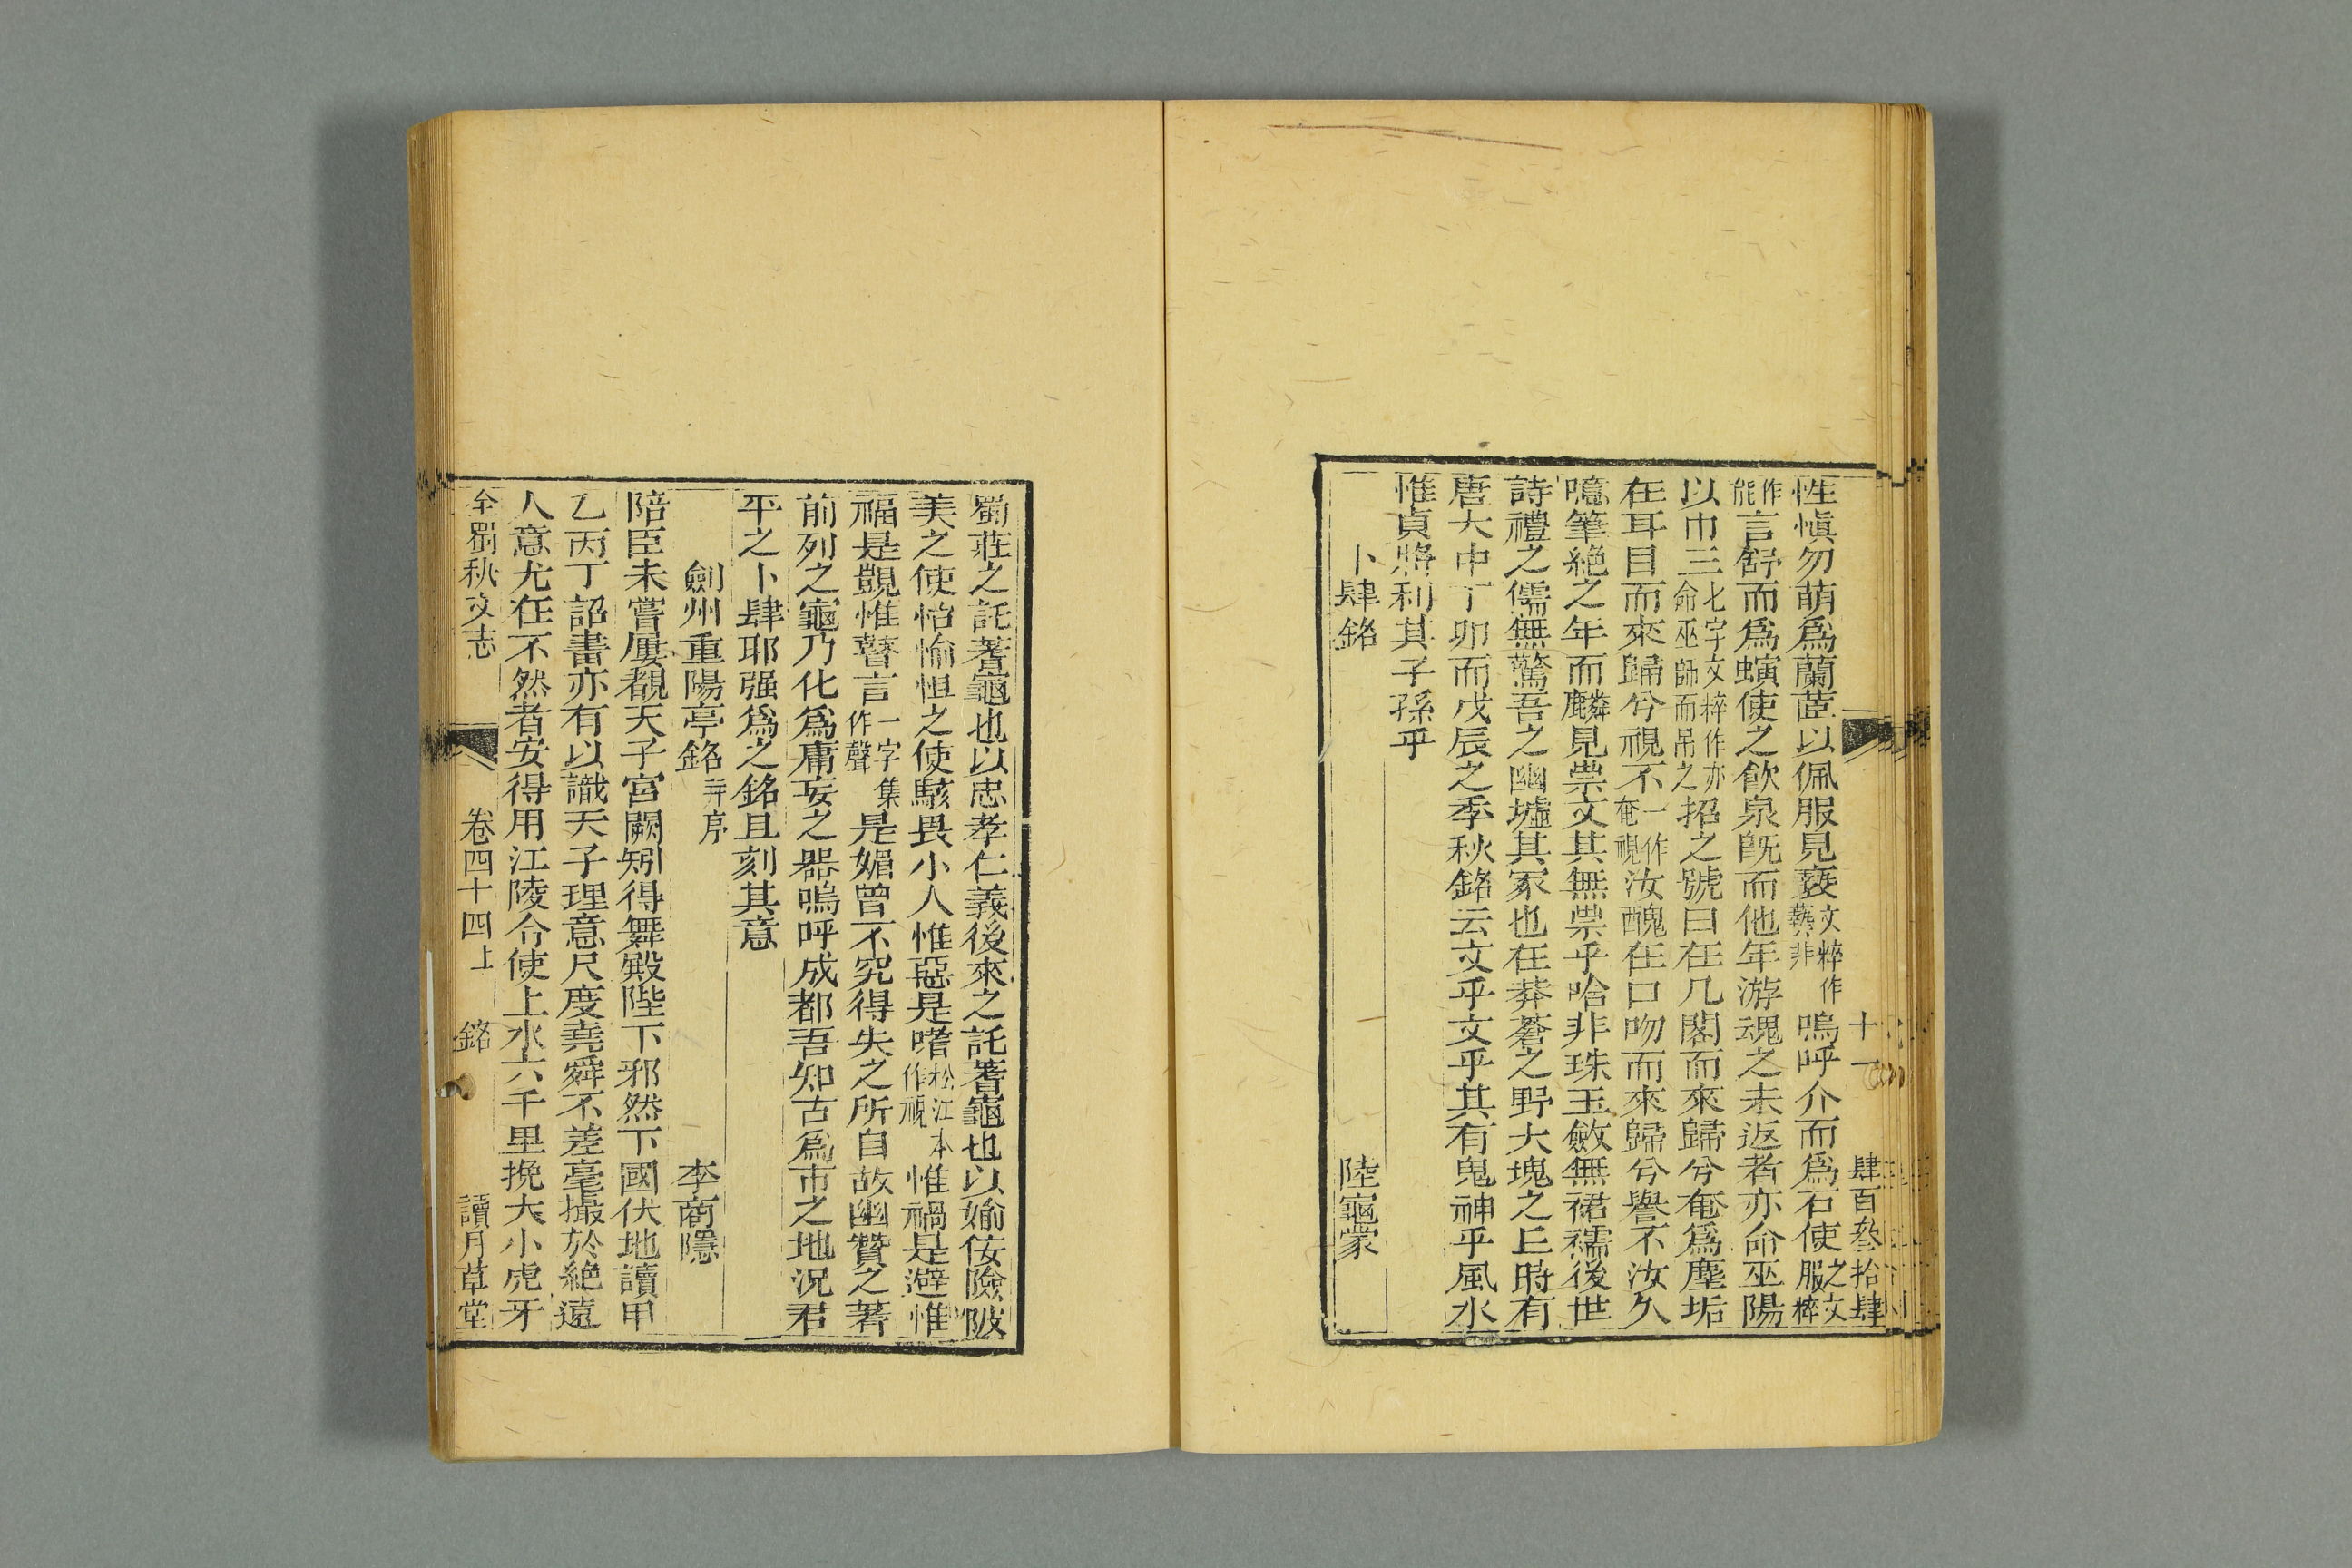 十一 肆百叁拾肆
性愼勿萌爲蘭茝以佩服見褻文粹作藝非嗚呼介而爲石使之文服粹
作能言舒而爲螾使之飲泉旣而他年游魂之未返者亦命巫陽
以巾三七字文粹作亦命巫師而吊之招之號曰在几閣而來歸兮奄爲塵垢
在耳目而來歸兮視不一作奄視汝醜在口吻而來歸兮譽不汝久
噫筆絶之年而麟見祟文其無祟乎唅非珠玉斂無裙襦後世
詩禮之儒無驚吾之幽墟其冢也在莽蒼之野大塊之丘時有
唐大中丁卯而戊辰之季秋銘云文乎文乎其有鬼神乎風水
惟貞將利其子孫乎
卜肆銘 陸龜蒙
蜀莊之託蓍龜也以忠孝仁義後來之託蓍龜也以媮佞險陂
美之使怡愉怛之使駭畏小人惟惡是嗜松江本作視惟禍是避惟
福是覬惟瞽言一字集作聲是媚曾不究得失之所自故幽贊之蓍
前列之龜乃化爲庸妄之器嗚呼成都吾知古爲市之地況君
平之卜肆耶强爲之銘且刻其意
劍州重陽亭銘并序 李商隱
陪臣未嘗屢覩天子宮闕矧得舞殿陛下邪然下國伏地讀甲
乙丙丁詔書亦有以識天子理意尺度堯舜不差毫撮於絶遠
人意尤在不然者安得用江陵令使上水六千里挽大小虎牙
全蜀秇文志 卷四十四上 銘 讀月草堂